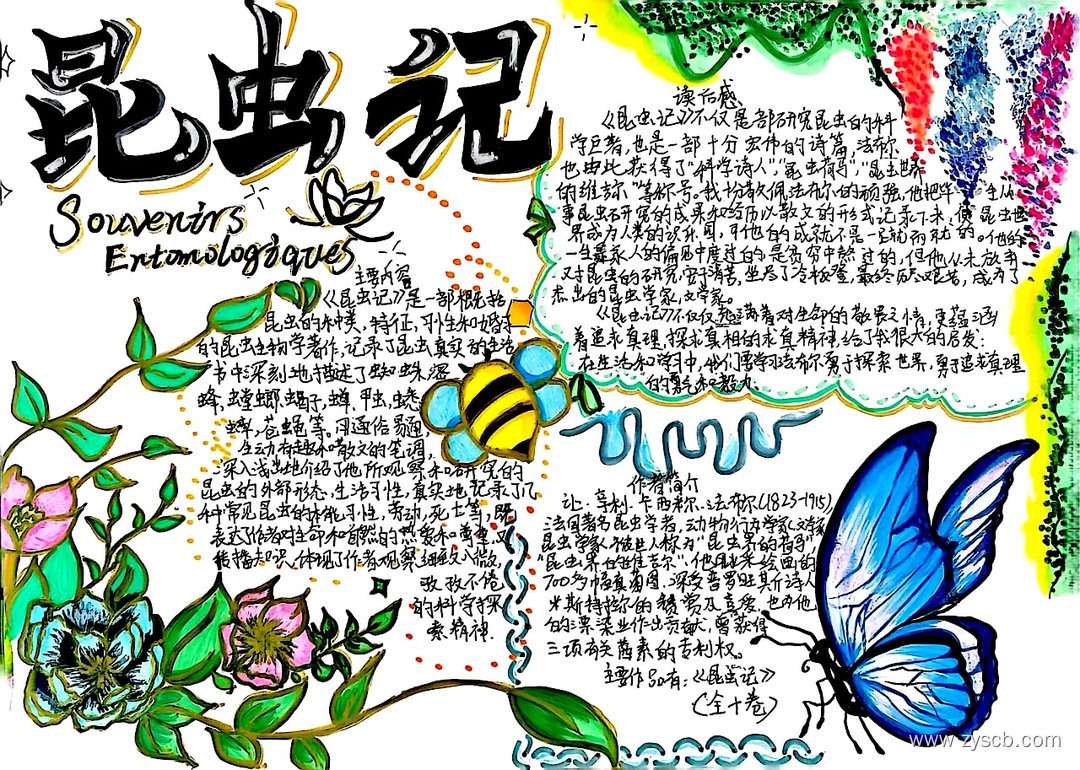 昆虫记
Souvenirs
Entomologiques
主要内容
《昆虫记》是一部概括
昆虫的种类，特征，习性和婚习
的昆虫生物学著作，记录了昆虫真实的生活
书中深刻地描述了蜘蛛
蜂，螳螂，蝎子，蝉，甲虫，蟋
蟀，苍蝇等。
生动有趣和散文的笔调，
深入浅出地介绍了他所观察和研究的
昆虫的外部形态，生活习性，真实地记录了几
种常见昆虫的本能习性，劳动，死亡等，既
表达了作者对生命和自然的热爱和尊重，又
传播知识，体现了作者观察细致入微，
孜孜不倦
的科学探
索精神.
读后感
《昆虫记》不仅是部研究昆虫的科
学巨著，也是一部十分宏伟的诗篇，法布尔
也由此获得了"科学诗人"，"昆虫荷马"，"昆虫世界
的维吉尔"等称号。我十分钦佩法布尔的顽强，他把毕生从
事昆虫研究的成果和经历以散文的形式记录下来，使昆虫世
界成为人类的
一生
又对昆虫的研究，
杰出的昆虫学家，文学家。
《昆虫记》不仅仅充满着对生命的敬畏之情，更蕴涵
着追求真理，探求真相的求真精神，给了我很大的启发：
在生活和学习中，我们要学习法布尔勇于探索世界，勇于追求真理
的勇气和毅力.
作者简介
让·亨利·卡西米尔·法布尔(1823-1915)
法国著名昆虫学者，动物行为学家，文学家
昆虫学家，被世人称为"昆虫界的荷马"
"昆虫界的维吉尔"，他用水彩绘画的
700多幅真菌图，深受普罗旺斯诗人
米斯特拉尔的赞赏及喜爱，也为他
的漂染业作出贡献，曾获得
三项有关茜素的专利权。
主要作品有：《昆虫记》
(全十卷)
www.zyscb.com